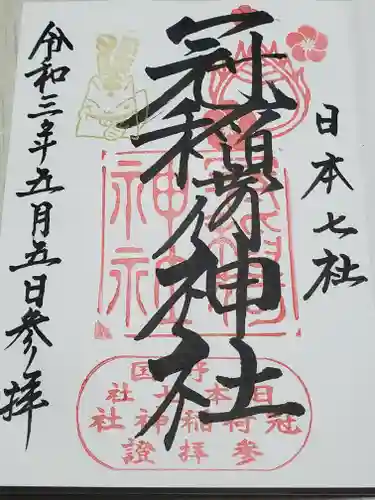 日本七社
冠稲荷神社
令和三年五月五日参拝
野国
日本七社
冠稲荷神社
参拝證